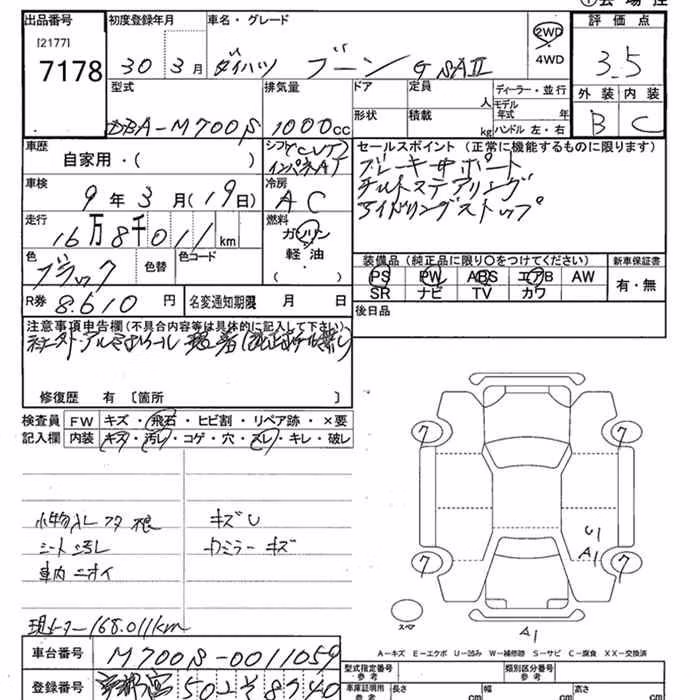 出品番号 初度登録年月 車名・グレード 評価点
[2177]
7178 30 3月 ダイハツ ブーン G SAII 2WD 4WD 3.5
型式 排気量 ドア 定員 人 ディーラー・並行 外装 内装
DBA-M700S 1000cc 形状 積載 kg モデル年式 年 ハンドル 左・右 B C
車歴 自家用・( ) シフト (CVT) インパネAT セールスポイント (正常に機能するものに限ります)
ブレーキサポート
チルトステアリング
アイドリングストップ
車検 9年3月(19日) 冷房 AC
走行 16万8千011km 燃料 ガソリン 軽油 ( )
色 ブラック 色替 色コード
装備品 (純正品に限り○をつけてください) 新車保証書
PS PW ABS エアB AW 有・無
SR ナビ TV カワ
R券 8.610円 名変通知期限 月 日 後日品
注意事項申告欄(不具合内容等は具体的に記入して下さい)
修復歴 有 [箇所 ]
検査員 FW キズ・飛石・ヒビ割・リペア跡・×要
記入欄 内装 キズ・汚レ・コゲ・穴・スレ・キレ・破レ
小物入レフタ 根 キズU
シート汚レ カミラー キズ
車内ニオイ
7 7
7 7
U1
A1
スペア
A1
現メーター168.011km
A-キズ E-エクボ U-凹み W-補修跡 S-サビ C-腐食 XX-交換済
車台番号 M700S-0011059
型式指定番号 ・参考 類別区分番号 ・参考
登録番号 50 87-40
車庫証明用 参考 長さ cm 幅 cm 高さ cm